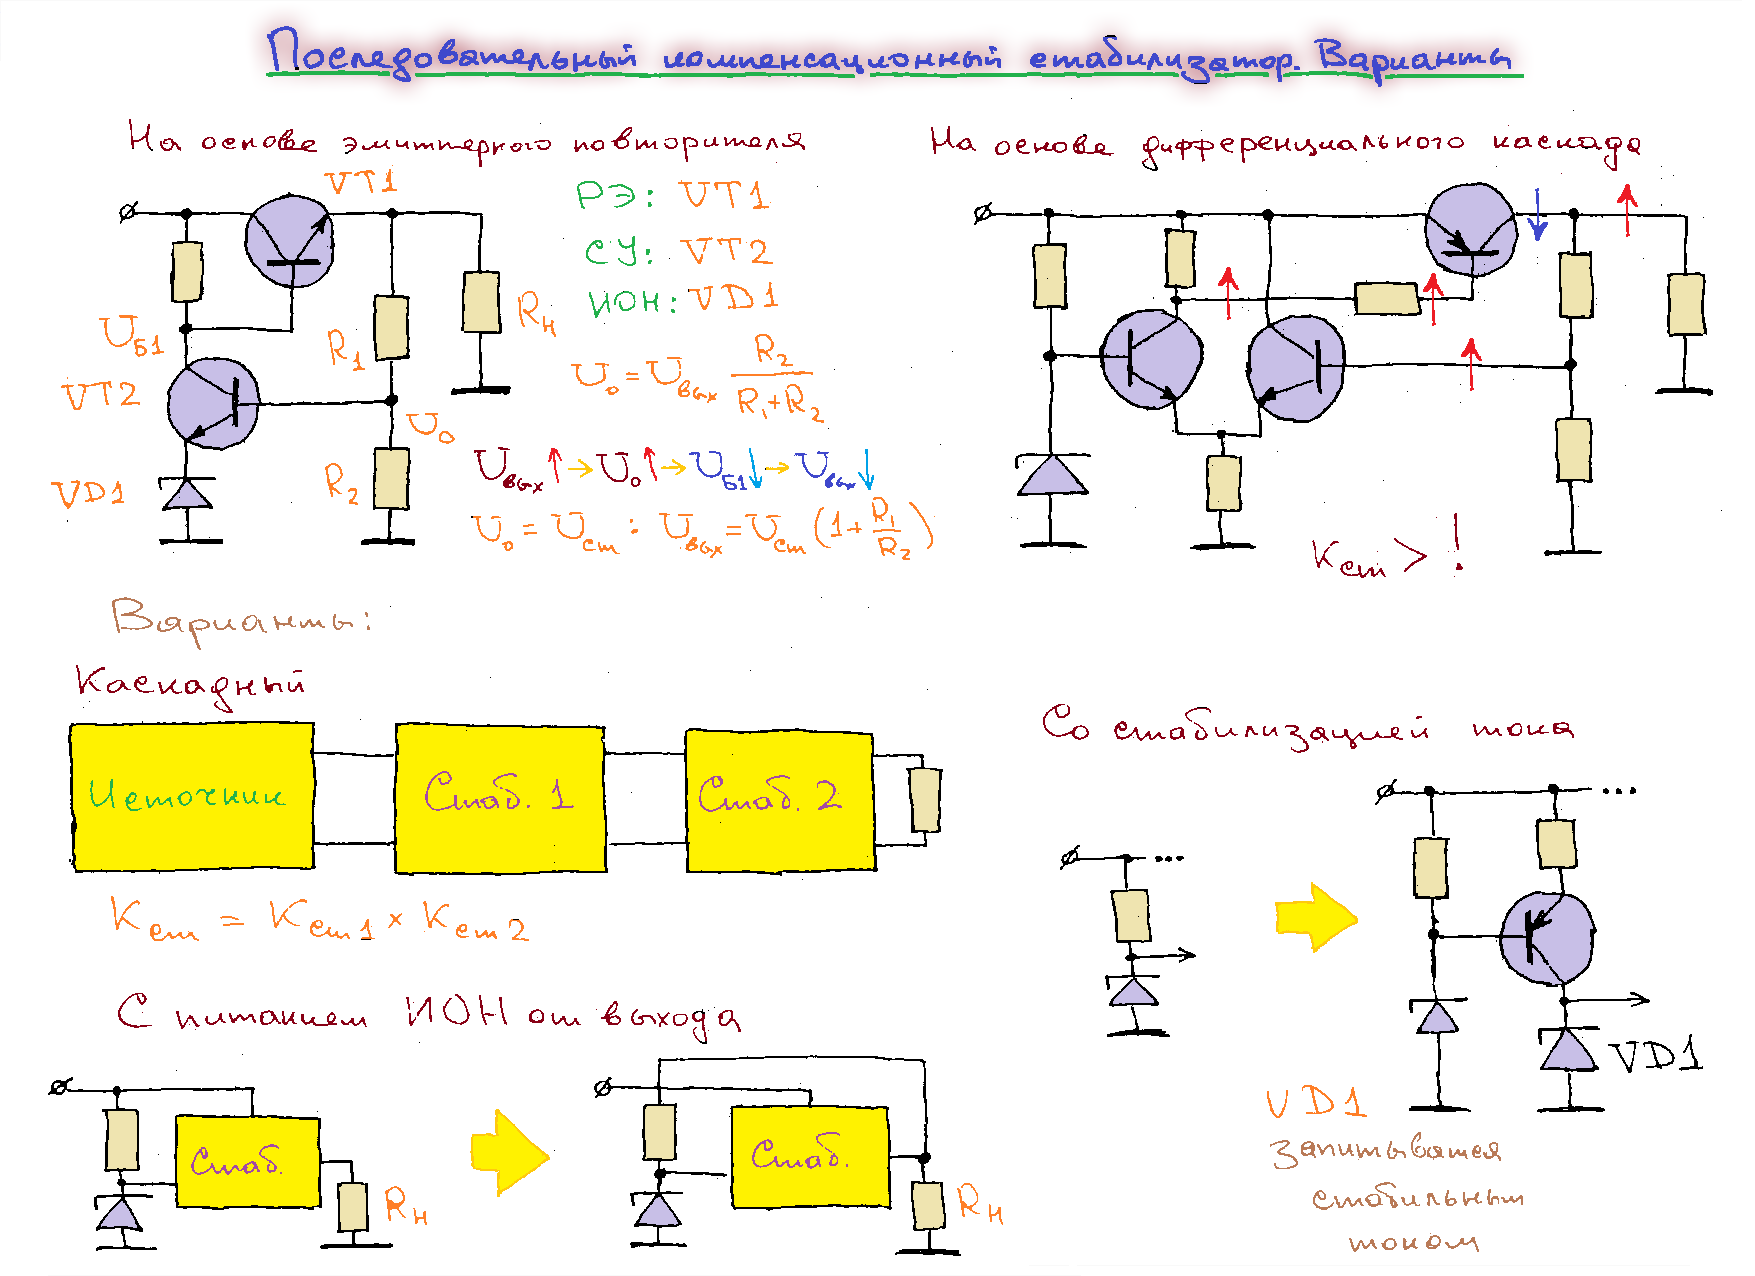 Последовательный компенсационный стабилизатор. Варианты
На основе эмиттерного повторителя
VT1
РЭ: VT1
СУ: VT2
ИОН: VD1
Uб1
R1
Rн
VT2
U0 = Uвых R2 / (R1+R2)
U0
VD1
R2
Uвых ↑ → U0 ↑ → Uб1 ↓ → Uвых ↓
U0 = Uст : Uвых = Uст (1 + R1/R2)
На основе дифференциального каскада
Kст > !
Варианты:
Каскадный
Источник
Стаб. 1
Стаб. 2
Kст = Kст1 × Kст2
С питанием ИОН от выхода
Стаб.
Rн
Стаб.
Rн
Со стабилизацией тока
...
...
VD1
VD1
запитывается
стабильным
током